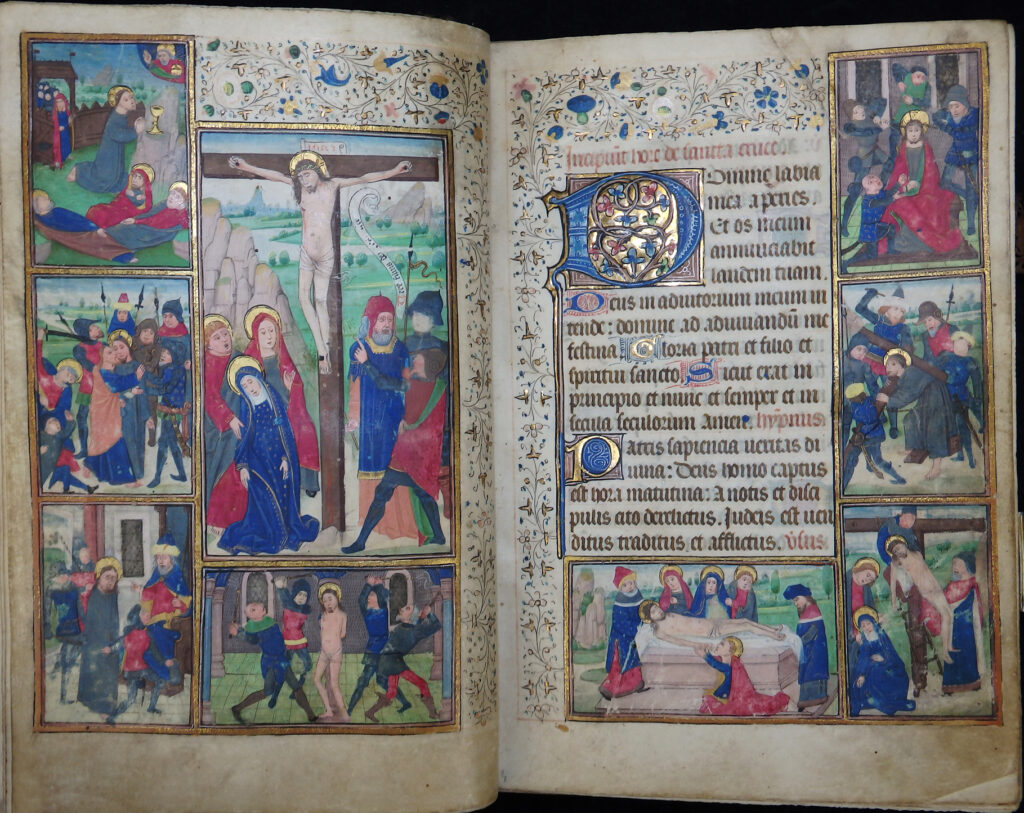 Incipiūt hore de sancta cruce
Domine labia
mea aperies
Et os meum
annunciabit
laudem tuam.
Deus in adiutorium meum in
tende: domine ad adiuuandū me
festina. Gloria patri et filio et
spiritui sancto. Sicut erat in
principio et nunc et semper et in
secula seculorum Amen. hypnus.
Patris sapiencia ueritas di
uina: Deus homo captus
est hora matutina: A notis et disci
pulis cito derelictus. Judeis est uen
ditus traditus et afflictus. Vsus